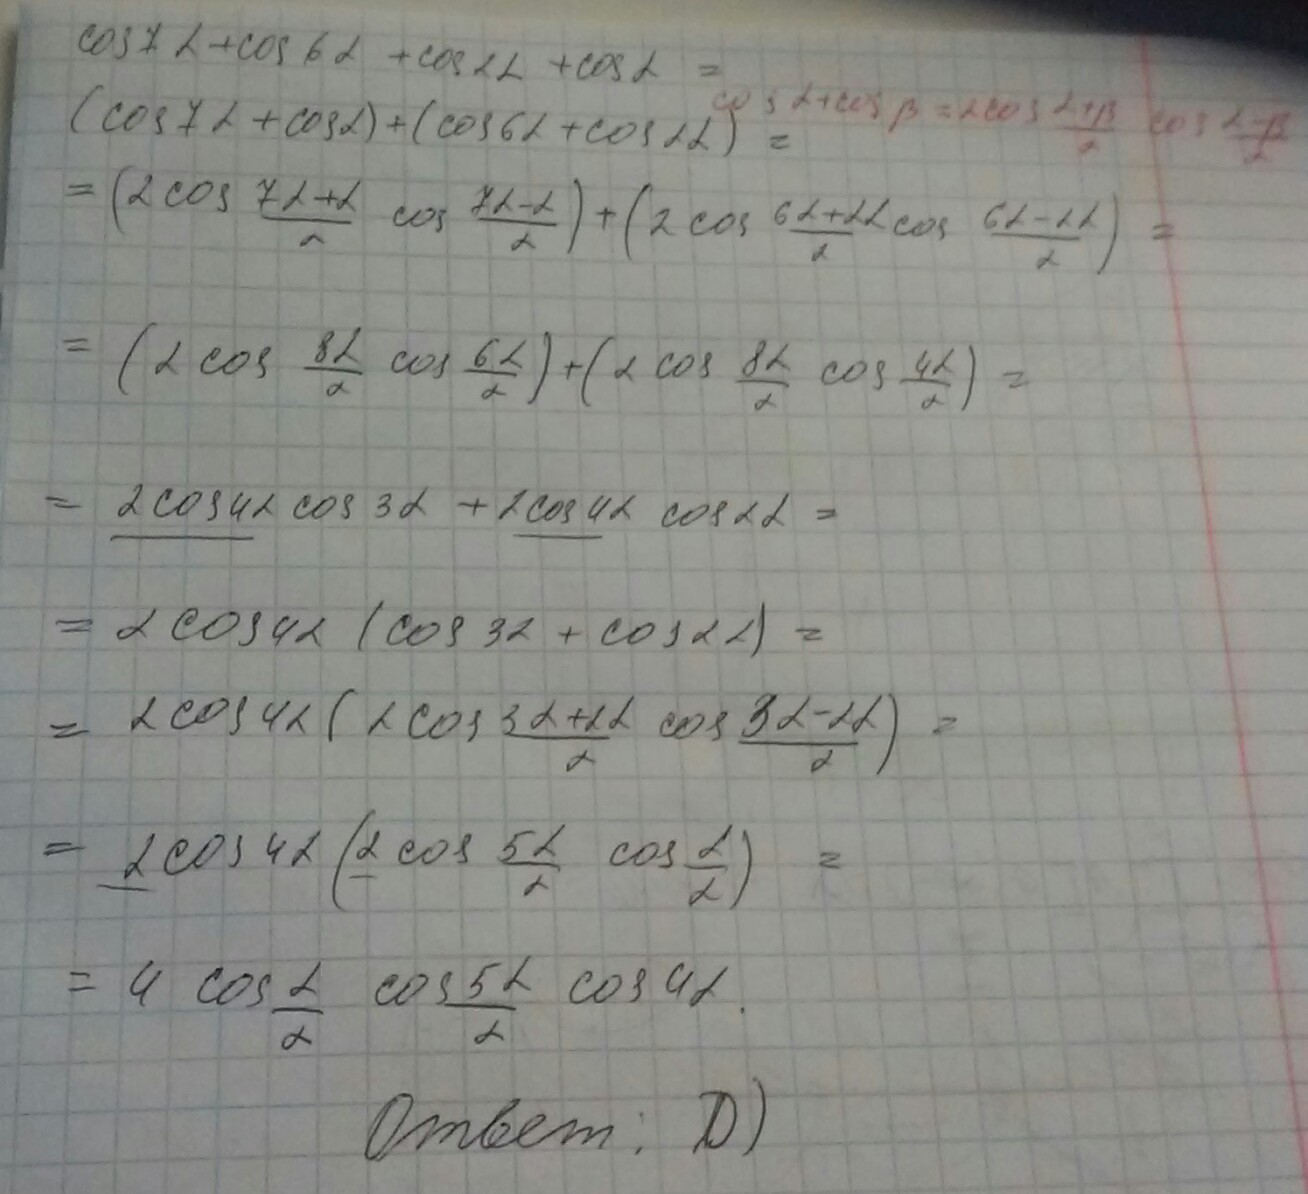 cos7α+cos6α+cos2α+cosα =
cosα+cosβ=2cos (α+β)/2 cos (α-β)/2
(cos7α+cosα)+(cos6α+cos2α) =
=(2cos (7α+α)/2 cos (7α-α)/2)+(2cos (6α+2α)/2 cos (6α-2α)/2) =
= (2cos 8α/2 cos 6α/2)+(2cos 8α/2 cos 4α/2) =
= 2cos4α cos3α +2cos4α cos2α =
= 2cos4α (cos3α + cos2α) =
= 2cos4α(2cos (3α+2α)/2 cos (3α-2α)/2) =
= 2cos4α(2cos 5α/2 cos α/2) =
= 4 cos α/2 cos 5α/2 cos4α.
Ответ: D)